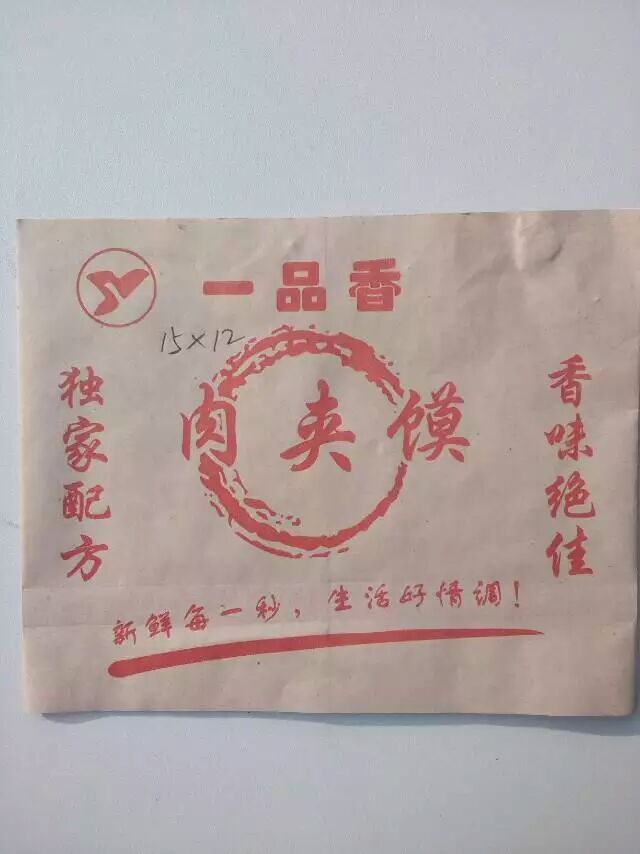 一品香
15×12
肉夹馍
独家配方
香味绝佳
新鲜每一秒，生活好情调！